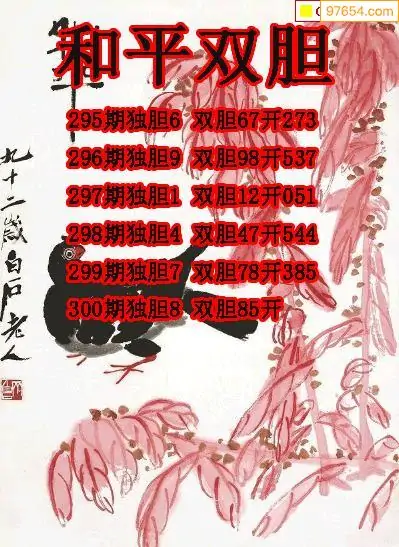 97654.com
和平双胆
295期独胆6 双胆67开273
296期独胆9 双胆98开537
297期独胆1 双胆12开051
298期独胆4 双胆47开544
299期独胆7 双胆78开385
300期独胆8 双胆85开
九十二岁白石老人